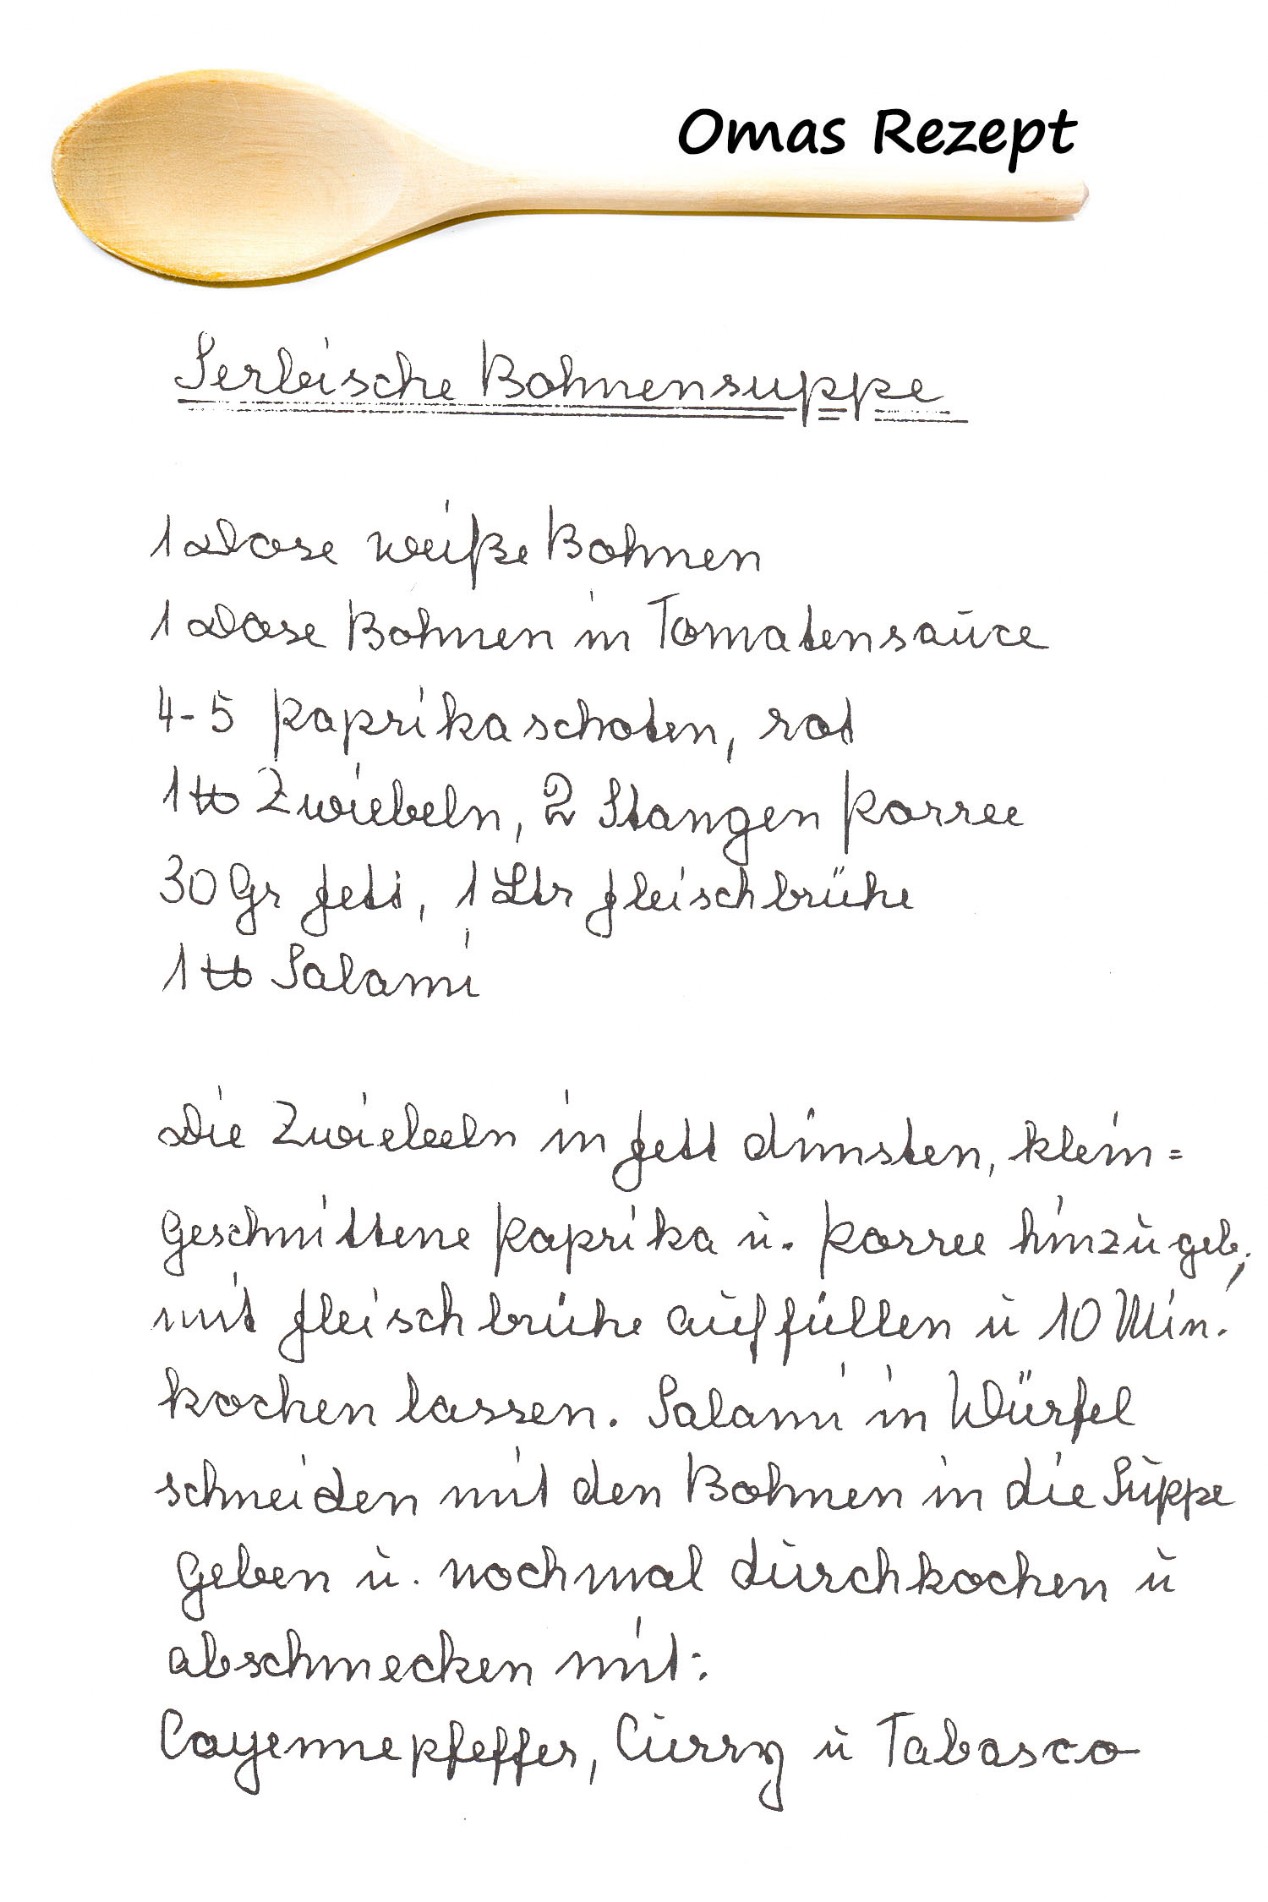 Omas Rezept
Serbische Bohnensuppe
1 Dose weiße Bohnen
1 Dose Bohnen in Tomatensauce
4-5 Paprikaschoten, rot
1 ℔ Zwiebeln, 2 Stangen Porree
30 Gr Fett, 1 Ltr Fleischbrühe
1 ℔ Salami
Die Zwiebeln in Fett dünsten, klein=
geschnittene Paprika u. Porree hinzugeb,
mit Fleischbrühe auffüllen u 10 Min.
kochen lassen. Salami in Würfel
schneiden mit den Bohnen in die Suppe
geben u. nochmal durchkochen u
abschmecken mit:
Cayennepfeffer, Curry u Tabasco